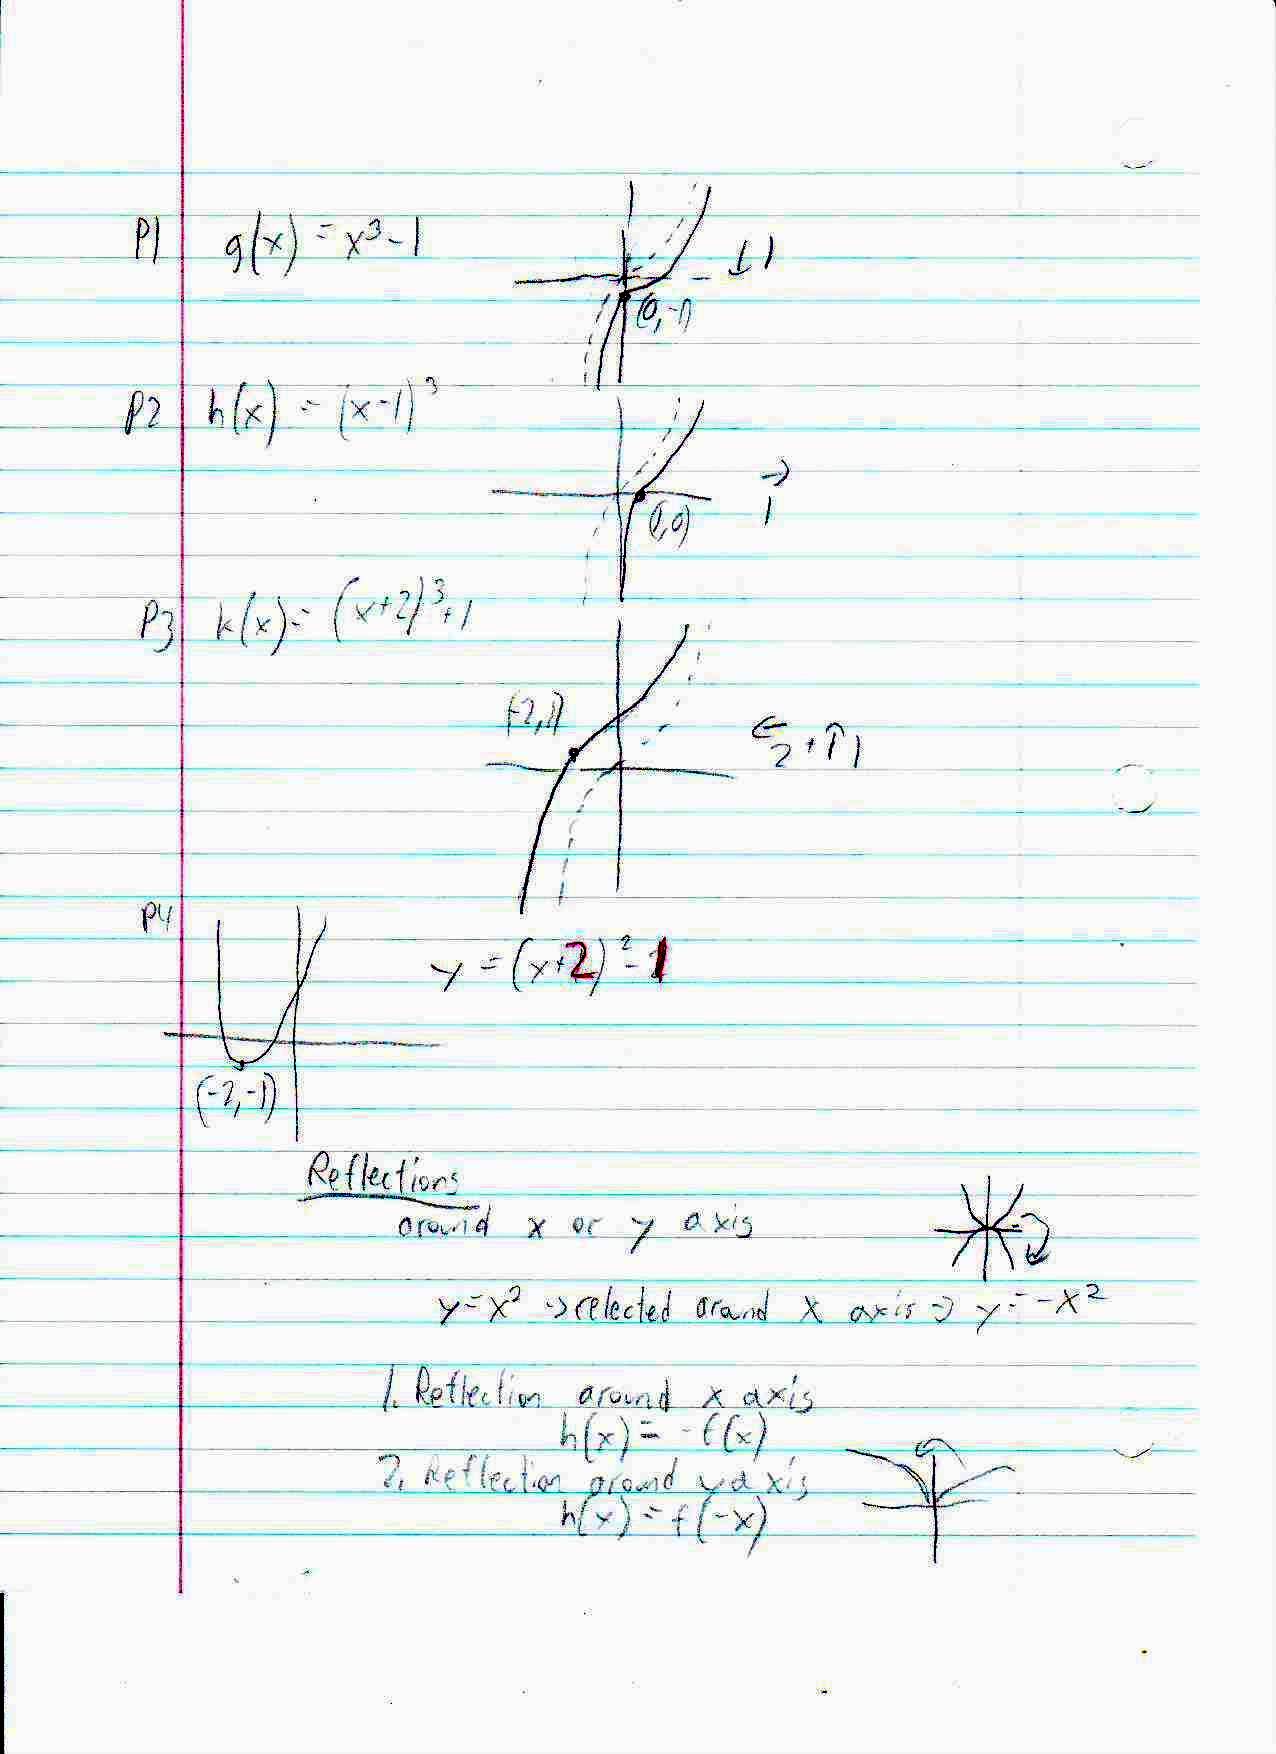 P1 g(x) = x³-1 ↓1
(0,-1)
P2 h(x) = (x-1)³ → 1
(1,0)
P3 k(x) = (x+2)³+1
(-2,1) ← 2 + ↑1
P4 y = (x+2)²-1
(-2,-1)
Reflections
around x or y axis
y=x² → relected around x axis → y=-x²
1. Reflection around x axis
h(x) = -f(x)
2. Reflection around y axis
h(x) = f(-x)